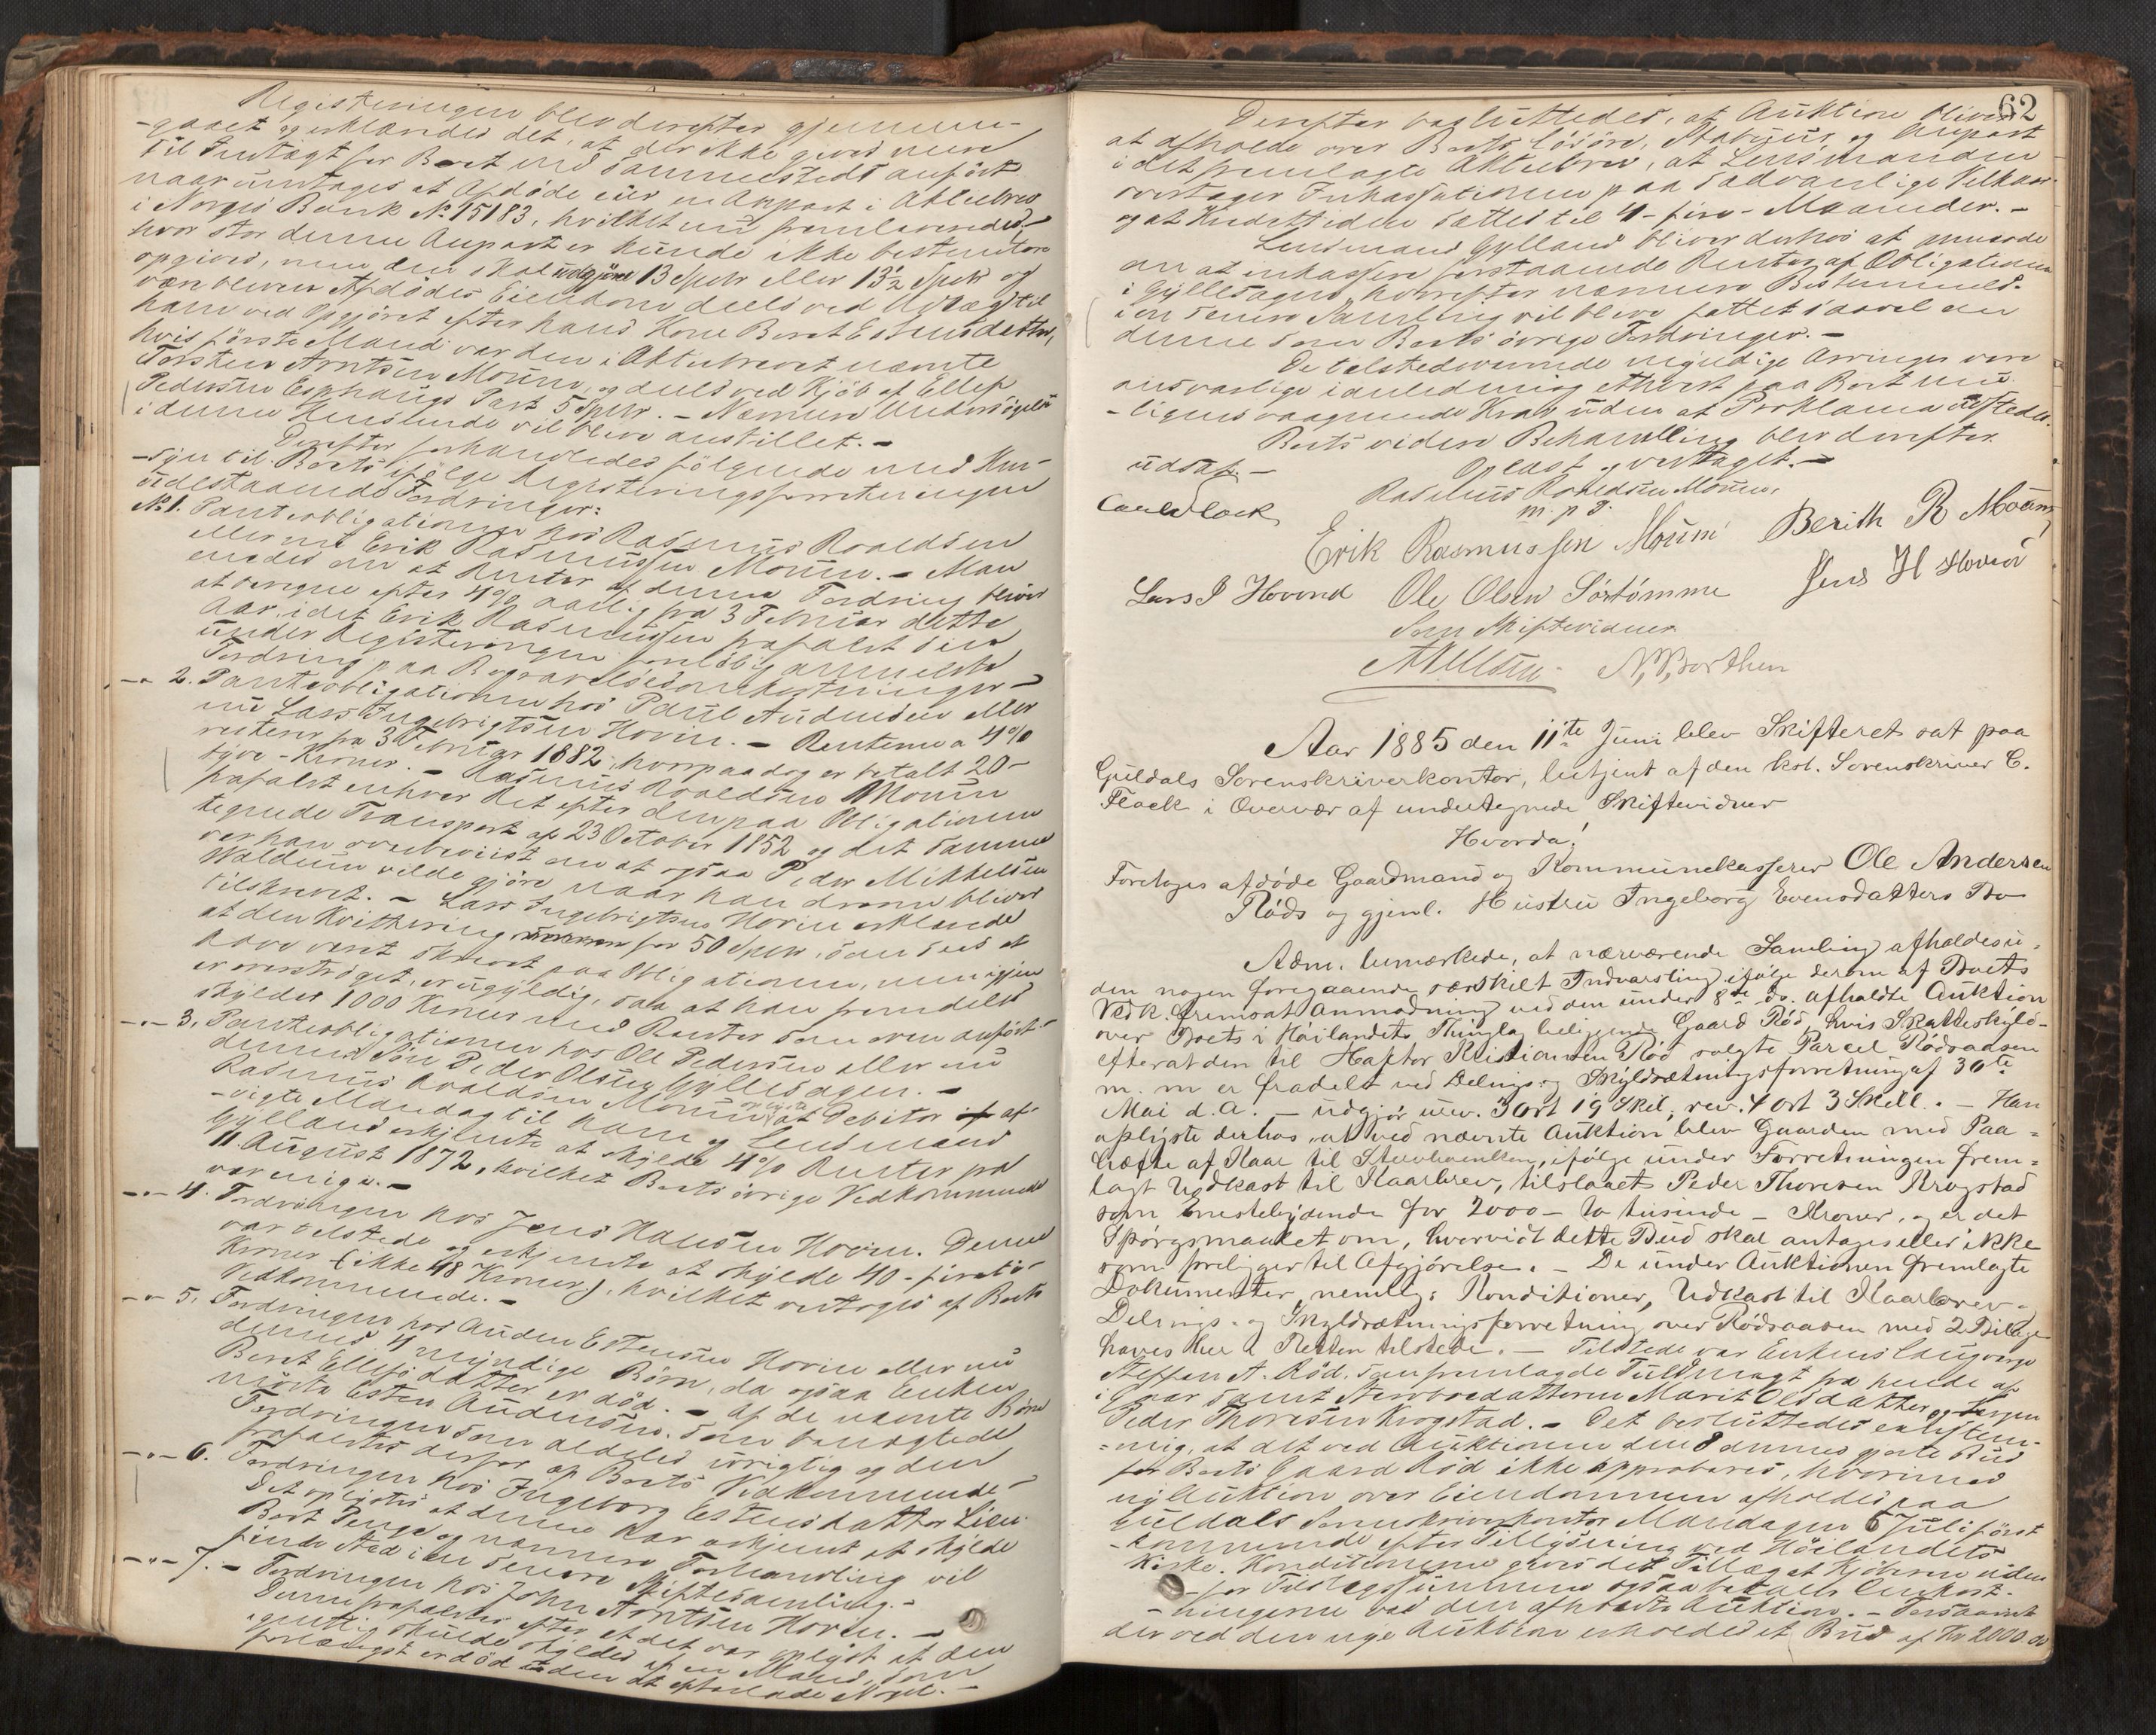 Registeringen blev derefter gjennem-
-gaaet og erklæredes det, at der ikke gives mere
til Indtægt for Boet end sammesteds anført
naar undtages at Afdøde eier en Anpart i Aktiebrev
i Norges Bank № 15183, hvilket nu fremleveredes.
hvor stor denne Anpart er kunde ikke bestemtere
opgives, men den skal udgjøre 13 Spdlr eller 13½ Spdlr og
var bleven Afdødes Eiendom deels ved Udlæg til
ham ved Opgjøret efter hans Kone Beret Estensdatter,
hvis første Mand var den i Aktiebrevet nævnte
Torsten Arntsen Moum, og deels ved Kjøb af Ellef
Pedersen Esphaugs Part 5 Spdlr. - Nærmere Undersøgelse
i denne Henseende vil blive anstillet. -
Derefter forhandledes følgende med Hen-
-syn til Boets ifølge Registeringsforretningen
udestaaende Fordringer:
№ 1. Panteobligationen hos Rasmus Roaldsen
eller nu Erik Rasmussen Moum. - Man
enedes om at Renter af denne Fordring bliver
at beregne efter 4% aarlig fra 3 Februar dette
Aar, idet Erik Rasmussen frafaldt sin
under Registeringen foreløbig anmeldte
Fordring paa Begravelsesomkostninger -
-"- 2. Panteobligationen hos Paul Audensen eller
nu Lars Ingebrigtsen Hovin. - Renterne a 4%
resterer fra 3 Februar 1882, hvorpaa dog er betalt 20-
tyve - Kroner. - Rasmus Roaldsen Moum
frafaldt enhver Ret efter den paa Obligationen
tegnede Transport af 23 October 1852 og det samme
var han overbeviist om at ogsaa Peder Mikkelsen
Waldum vilde gjøre naar han derom bliver
tilskrevet. - Lars Ingebrigtsen Hovin erklærede
at den Kvittering for 50 Spdlr, som sees at
have været skrevet paa Obligationen, men igjen
er overstrøget, er ugyldig, saa at han fremdeles
skylder 1000 Kroner med Renter som oven anført.
-"- 3. Panteobligationen hos Ole Pedersen eller nu
dennes Søn Peder Olsen Gyllesagen. -
Rasmus Roaldsen Moum oplyste at Debitor af-
-vigte Mandag til ham og Lensmand
Gylland erkjendte at skylde 4% Renter fra
11 August 1872, hvilket Boets øvrige Vedkommende
var enige i. -
-"- 4. Fordringen hos Jens Hansen Hovin. Denne
var tilstede og erkjendte at skylde 40 - firetio -
Kroner (ikke 48 Kroner), hvilket vedtoges af Boets
Vedkommende. -
-"- 5. Fordringen hos Auden Estensen Hovin eller nu
dennes 4 myndige Børn, da ogsaa Enken
Beret Ellefsdatter er død. - Af de nævnte Børn
mødte Esten Audensen. Som benægtede
Fordringen som aldeles urigtig og den
frafaldtes derfor af Boets Vedkommende
-"- 6. Fordringen hos Ingeborg Estensdatter Lien.
Det oplystes at denne har erkjendt at skylde
Boet Penge og nærmere Forhandling vil
finde Sted i en senere Skiftesamling. -
-"- 7. - Fordringen hos John Arntsen Hovin. -
Denne frafaldtes efter at det var oplyst at den
egentlig skulde skyldes af en Mand, som
forlængst er død uden at efterlade Noget. -
62
Derefter besluttedes, at Auktion bliver
at afholde over Boets Løsøre, Stabbuur og Anpart
i det fremlagte Aktiebrev, at Lensmanden
overtager Inkassationen paa sædvanlige Vilkaar
og at Kredittiden sættes til 4 - fire - Maaneder. -
Lensmand Gylland bliver derhos at anmode
om at inkassere forstaaende Renter af Obligationen
i Gyllesagen, hvorefter nærmere Bestemmelse
i en senere Samling vil blive fattet saavel om
denne som Boets øvrige Fordringer. -
De tilstedeværende myndige Arvinger vare
ansvarlige i anledning ethvert paa Boet mu-
-ligens vaagnende Krav uden at Proklama udstedes.
Boets videre Behandling blev derefter
udsat. -
Oplæst og vedtaget. -
Carl Flock
Rasmus Roaldsen Moum,
m. p. P.
Erik Rasmussen Moum Berith R Moum
Lars I Hovind Ole Olsen Sørtømme Jens H Hovin
Som Skiftevidner
N. Borthen
Aar 1885 den 11te Juni blev Skifteret sat paa
Guldals Sorenskriverkontor, betjent af den kst. Sorenskriver C.
Flock i Overvær af undertegnede Skiftevidner
Hvorda!
Foretoges afdøde Gaardmand og Kommunekasserer Ole Andersen
Røds og gjenl. Hustru Ingeborg Evensdatters Bo
Adm. bemærkede, at nærværende Samling afholdes u-
den nogen foregaaende særskilt Indvarsling ifølge derom af Boets
Vedk. fremsat Anmodning ved den under 8de ds. afholdte Auktion
over Boets i Høilandets Thinglag beliggende Gaard Rød, hvis Skatteskyld -
efterat den til Haftor Kristiansen Rød solgte Parcel Rødsaasen
m. m. er fradelt ved Delings og Skyldsætningsforretning af 30te
Mai d. A. - udgjør urev. 3 Ort 19 Skil, rev. 4 Ort 3 Skill. - Han
oplyste derhos, at ved nævnte Auktion blev Gaarden med Paa-
hæfte af Kaar til Sterboenken, ifølge under Forretningen frem-
lagt Udkast til Kaarbrev, tilslaaet Peder Thoresen Krogstad
som mestbydende for 2000 - to tusinde - Kroner, og er det
Spørgsmaalet om, hvorvidt dette Bud skal antages eller ikke
som foreligger til Afgjørelse. - De under Auktionen fremlagte
Dokumenter, nemlig: Konditioner, Udkast til Kaarbrev -
Delings- og Skyldsætningsforretning over Rødsaasen med 2 Bilage
haves her i Retten tilstede. - Tilstede var Enkens Laugværge
Steffen A. Rød, som fremlagde Fuldmagt fra hende af
i Gaar samt Sterbodatteren Marit Olsdatter og
Peder Thoresen Krogstad. - Det besluttedes enstem-
-mig, at det ved Auktionen den 8 dennes gjorte Bud
for Boets Gaard Rød ikke approberes, hvorimod
ny Auktion over Eiendommen afholdes paa
Guldals Sorenskriverkontor Mandagen 6 Juli først
-kommende efter Tillysning ved Høilandets
Kirke. Konditionerne gives det Tillæg at Kjøberen uden-
-for Tilslagssummen ogsaa betaler Omkost-
-ningerne ved den afholdte Auktion. - Forsaavidt
der ved den nye Auktion erholdes et Bud af Kr 2000.00